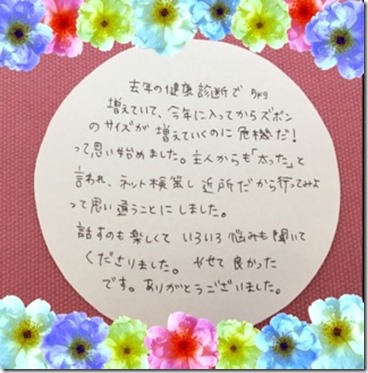 去年の健康診断で5kg
増えていて、今年に入ってからズボン
のサイズが増えていくのに危機だ!
って思い始めました。主人からも「太った」と
言われ、ネット検策し近所だから行ってみよ
って思い通うことにしました。
話すのも楽しくていろいろ悩みも聞いて
くださりました。やせて良かった
です。ありがとうございました。